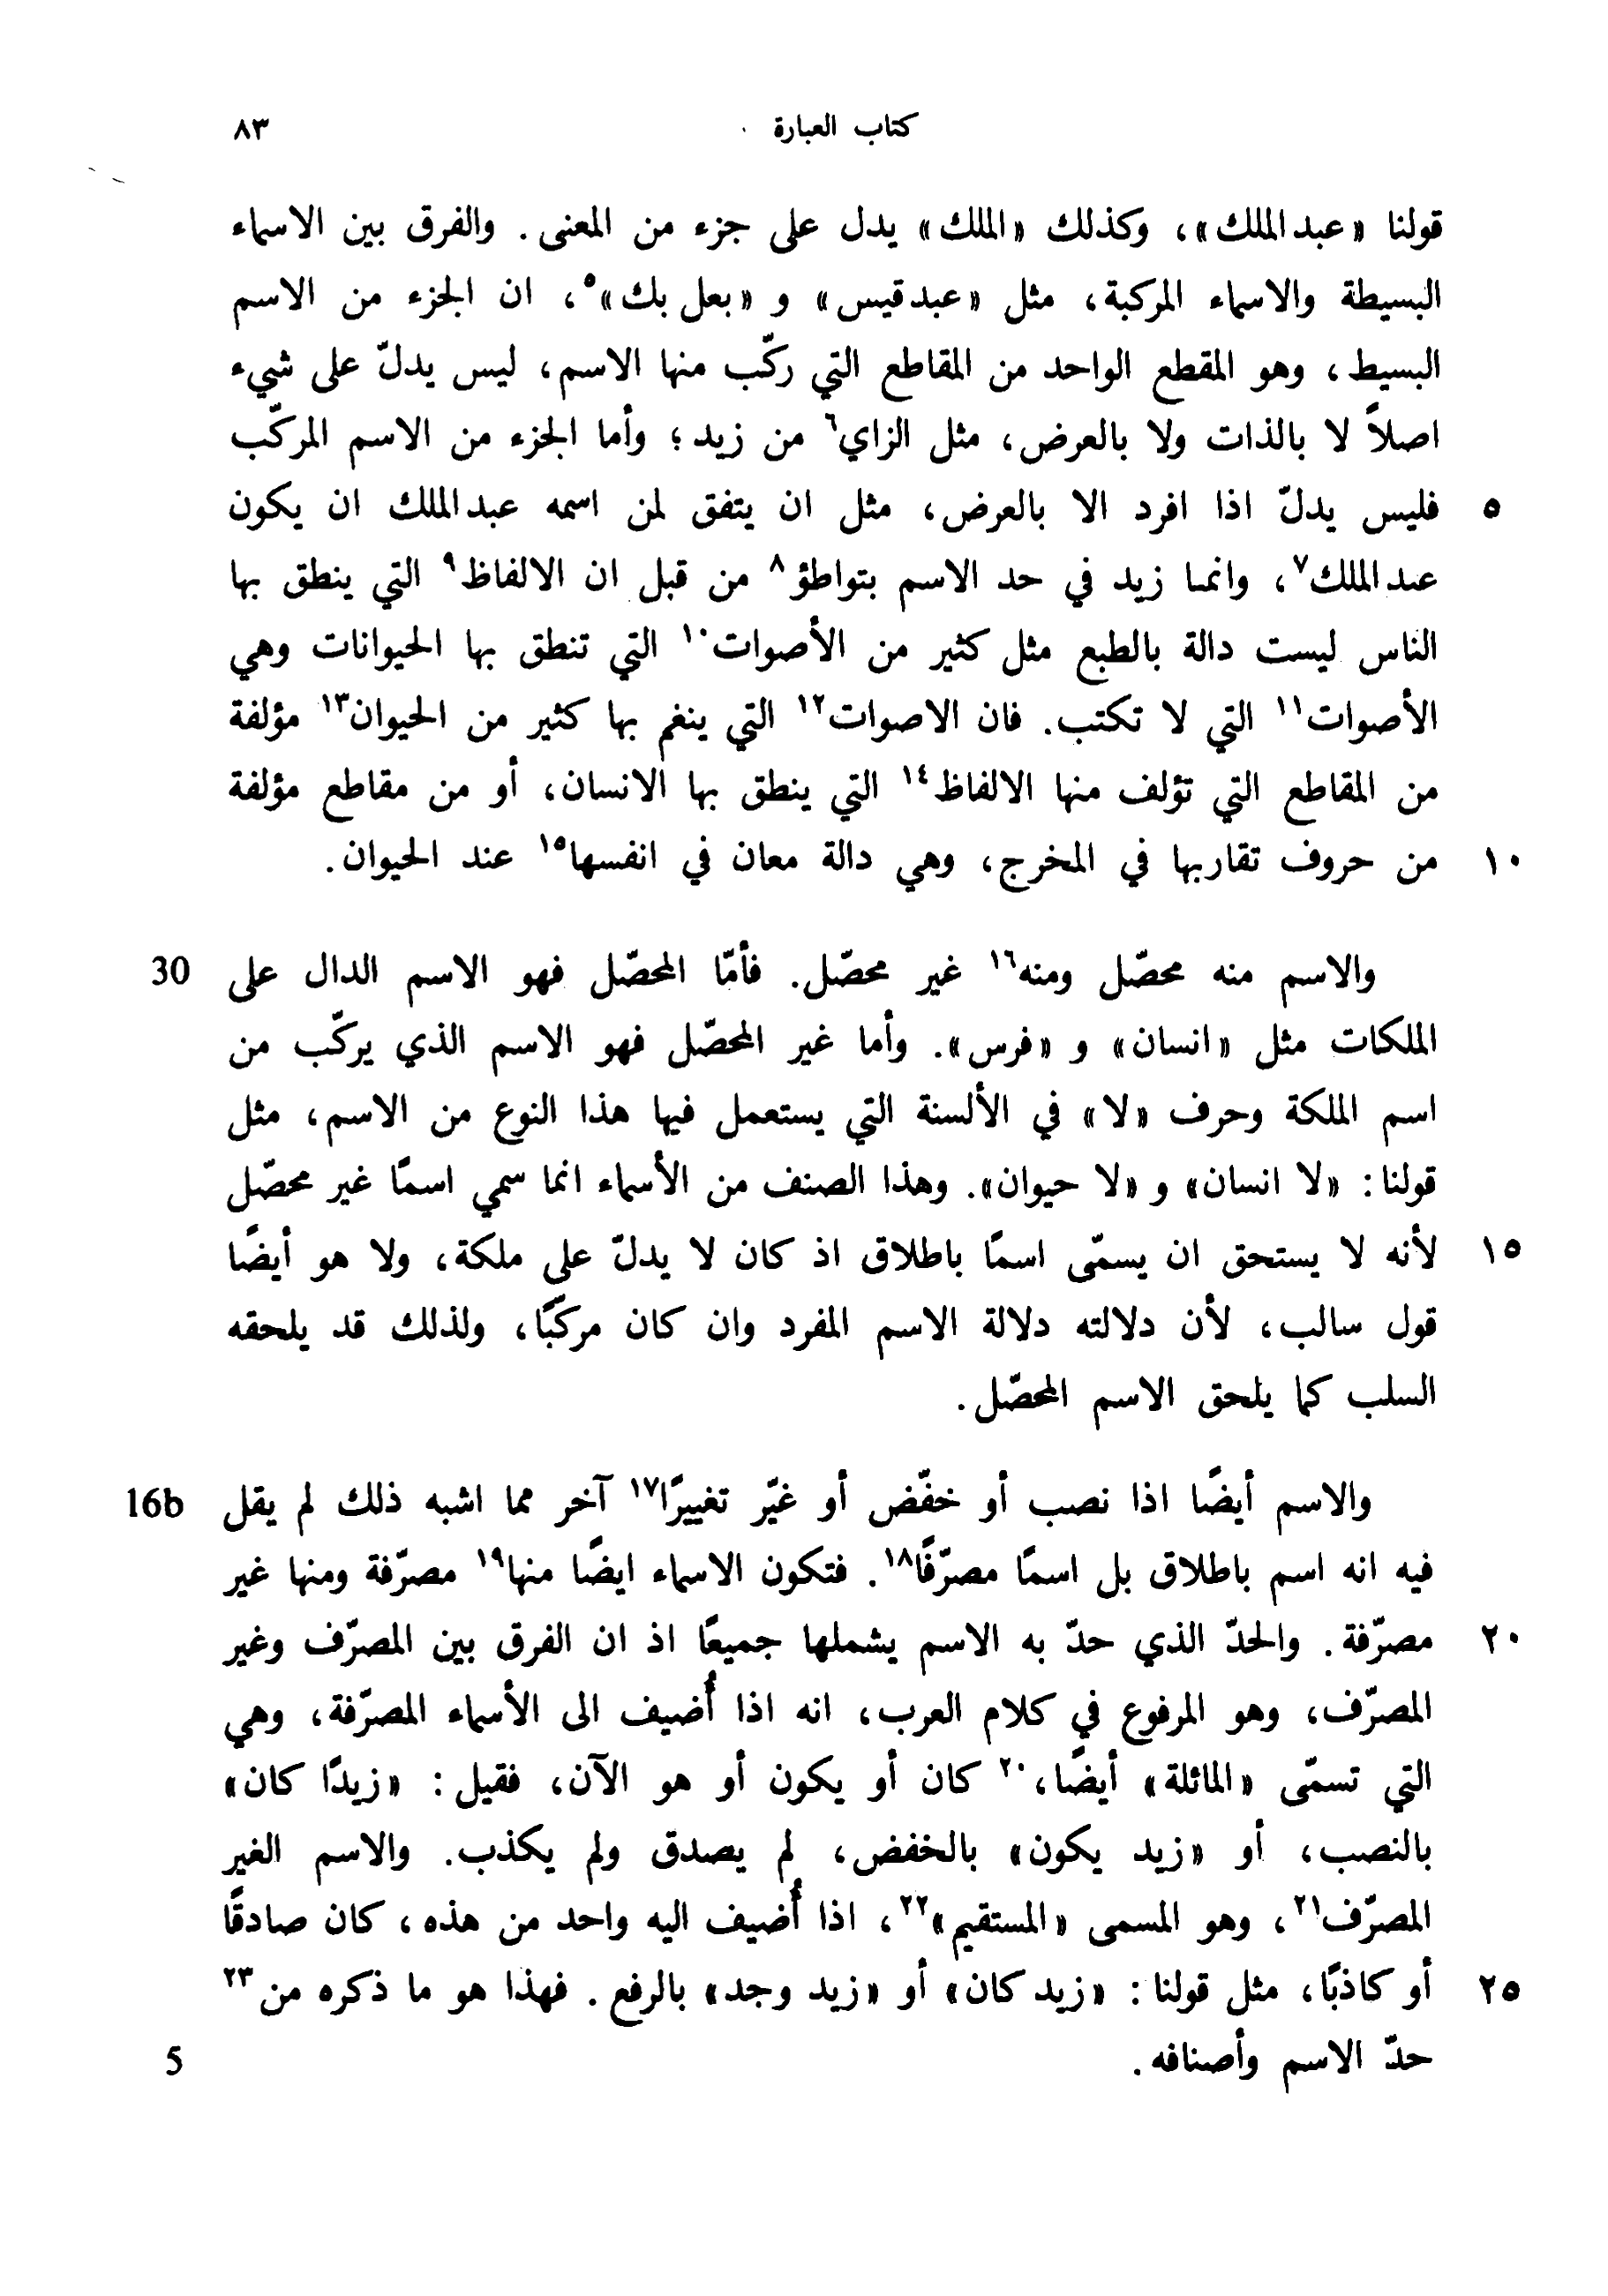 كتاب العبارة ٨٣
قولنا «عبدالملك»، وكذلك «الملك» يدل على جزء من المعنى. والفرق بين الاسماء
البسيطة والاسماء المركبة، مثل «عبدقيس» و «بعل بك»٥، ان الجزء من الاسم
البسيط، وهو المقطع الواحد من المقاطع التي ركّب منها الاسم، ليس يدلّ على شيء
اصلاً لا بالذات ولا بالعرض، مثل الزاي٦ من زيد؛ وأما الجزء من الاسم المركّب
٥ فليس يدلّ اذا افرد الا بالعرض، مثل ان يتفق لمن اسمه عبدالملك ان يكون
عبدالملك٧، وانما زيد في حد الاسم بتواطؤ٨ من قبل ان الالفاظ٩ التي ينطق بها
الناس ليست دالة بالطبع مثل كثير من الأصوات١٠ التي تنطق بها الحيوانات وهي
الأصوات١١ التي لا تكتب. فان الاصوات١٢ التي ينغم بها كثير من الحيوان١٣ مؤلفة
من المقاطع التي تؤلف منها الالفاظ١٤ التي ينطق بها الانسان، أو من مقاطع مؤلفة
١٠ من حروف تقاربها في المخرج، وهي دالة معان في انفسها١٥ عند الحيوان.
والاسم منه محصّل ومنه١٦ غير محصّل. فأمّا المحصّل فهو الاسم الدال على 30
الملكات مثل «انسان» و «فرس». وأما غير المحصّل فهو الاسم الذي يركّب من
اسم الملكة وحرف «لا» في الألسنة التي يستعمل فيها هذا النوع من الاسم، مثل
قولنا: «لا انسان» و «لا حيوان». وهذا الصنف من الأسماء انما سمي اسمًا غير محصّل
١٥ لأنه لا يستحق ان يسمّى اسمًا باطلاق اذ كان لا يدلّ على ملكة، ولا هو أيضًا
قول سالب، لأن دلالته دلالة الاسم المفرد وان كان مركّبًا، ولذلك قد يلحقه
السلب كما يلحق الاسم المحصّل.
والاسم أيضًا اذا نصب أو خفّض أو غيّر تغييرًا١٧ آخر مما اشبه ذلك لم يقل 16b
فيه انه اسم باطلاق بل اسمًا مصرّفًا١٨. فتكون الاسماء ايضًا منها١٩ مصرّفة ومنها غير
٢٠ مصرّفة. والحدّ الذي حدّ به الاسم يشملها جميعًا اذ ان الفرق بين المصرّف وغير
المصرّف، وهو المرفوع في كلام العرب، انه اذا أُضيف الى الأسماء المصرّفة، وهي
التي تسمّى «المائلة» أيضًا،٢٠ كان أو يكون أو هو الآن، فقيل: «زيدًا كان»
بالنصب، أو «زيد يكون» بالخفض، لم يصدق ولم يكذب. والاسم الغير
المصرّف٢١، وهو المسمى «المستقيم»٢٢، اذا أُضيف اليه واحد من هذه، كان صادقًا
٢٥ أو كاذبًا، مثل قولنا: «زيد كان» أو «زيد وجد» بالرفع. فهذا هو ما ذكره من٢٣
حدّ الاسم وأصنافه. 5